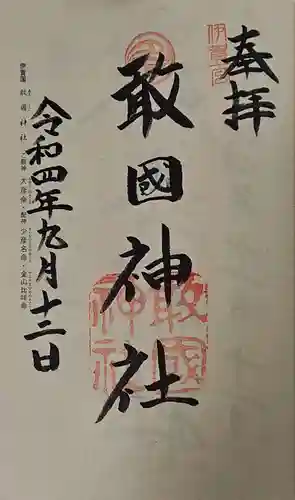 奉拝
伊賀一宮
敢國神社
敢國神社
令和四年九月十二日
伊賀国 敢國神社 主祭神 大彦命・配神 少彦名命・金山比咩命